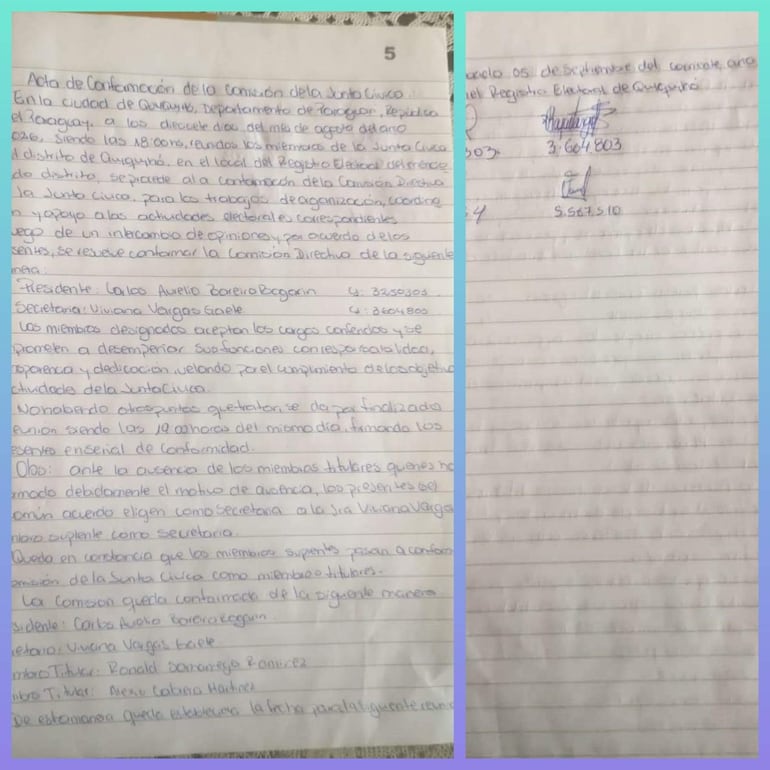 5
Acta de Conformación de la Comisión de la Junta Cívica
En la ciudad de Quyquyhó, Departamento de Paraguarí, República
el Paraguay, a los diecisiete días del mes de agosto del año
026, siendo las 18:00hs, reunidos los miembros de la Junta Cívica
l distrito de Quyquyhó, en el local del Registro Electoral del referen
do distrito, se procede a la conformación de la Comisión Directiva
la Junta Cívica, para los trabajos de organización, coordina
n y apoyo a las actividades electorales correspondientes
uego de un intercambio de opiniones y por acuerdo de los
sentes, se resuelve conformar la Comisión Directiva de la siguiente
nera:
Presidente: Carlos Aurelio Boreiro Bogarin
Secretaria: Viviana Vargas Gaele
Los miembros designados aceptan los cargos conferidos y se
prometen a desempeñar sus funciones con responsabilidad,
nsparencia y dedicación, velando por el cumplimiento de los objetivo
ctividades de la Junta Cívica.
No habiendo otros puntos que tratar, se da por finalizado
eunión siendo las 19:00 horas del mismo día, firmando los
esentes en señal de conformidad.
Obs: ante la ausencia de los miembros titulares quienes ha
rmado debidamente el motivo de ausencia, los presentes de
omún acuerdo eligen como Secretaria a la Sra Viviana Vargas
mbro suplente como secretaria.
Queda en constancia que los miembros suplentes pasan a conform
omisión de la Junta Cívica como miembros titulares.
La Comisión queda conformada de la siguiente manera
sidente: Carlos Aurelio Boreiro Bogarin
etaria: Viviana Vargas Gaele
mbro Titular: Ronald Samaniego Ramirez
mbro Titular: Cabrera Martinez
De esta manera queda establecida la fecha para la siguiente reunió
05 de Septiembre del corriente año
el Registro Electoral de Quyquyhó
303. 3.604.803
4 5.567.510